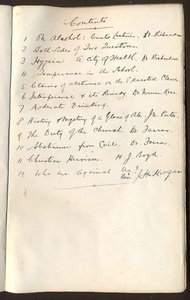 Contents
1 On Alcohol: Cantor Lectures. Dr. Richardson
2 Both Sides of Two Questions.
3 Hygeia A City of Health. Dr Richardson
4 Temperance in the School.
5 Claims of abstinence on the Educated Classes
6 Intemperance & its Remedy. Dr. Norman Kerr
7 Moderate Drinking.
8 History & Mystery of a Glass of Ale. J.
9 The Duty of the Church Dr. Farrar.
10 Abstinence from Evil. Dr. Farrar.
11 Christian Heroism. H. J. Boyd.
12 Who are against us? Rev. J. H. Morgan